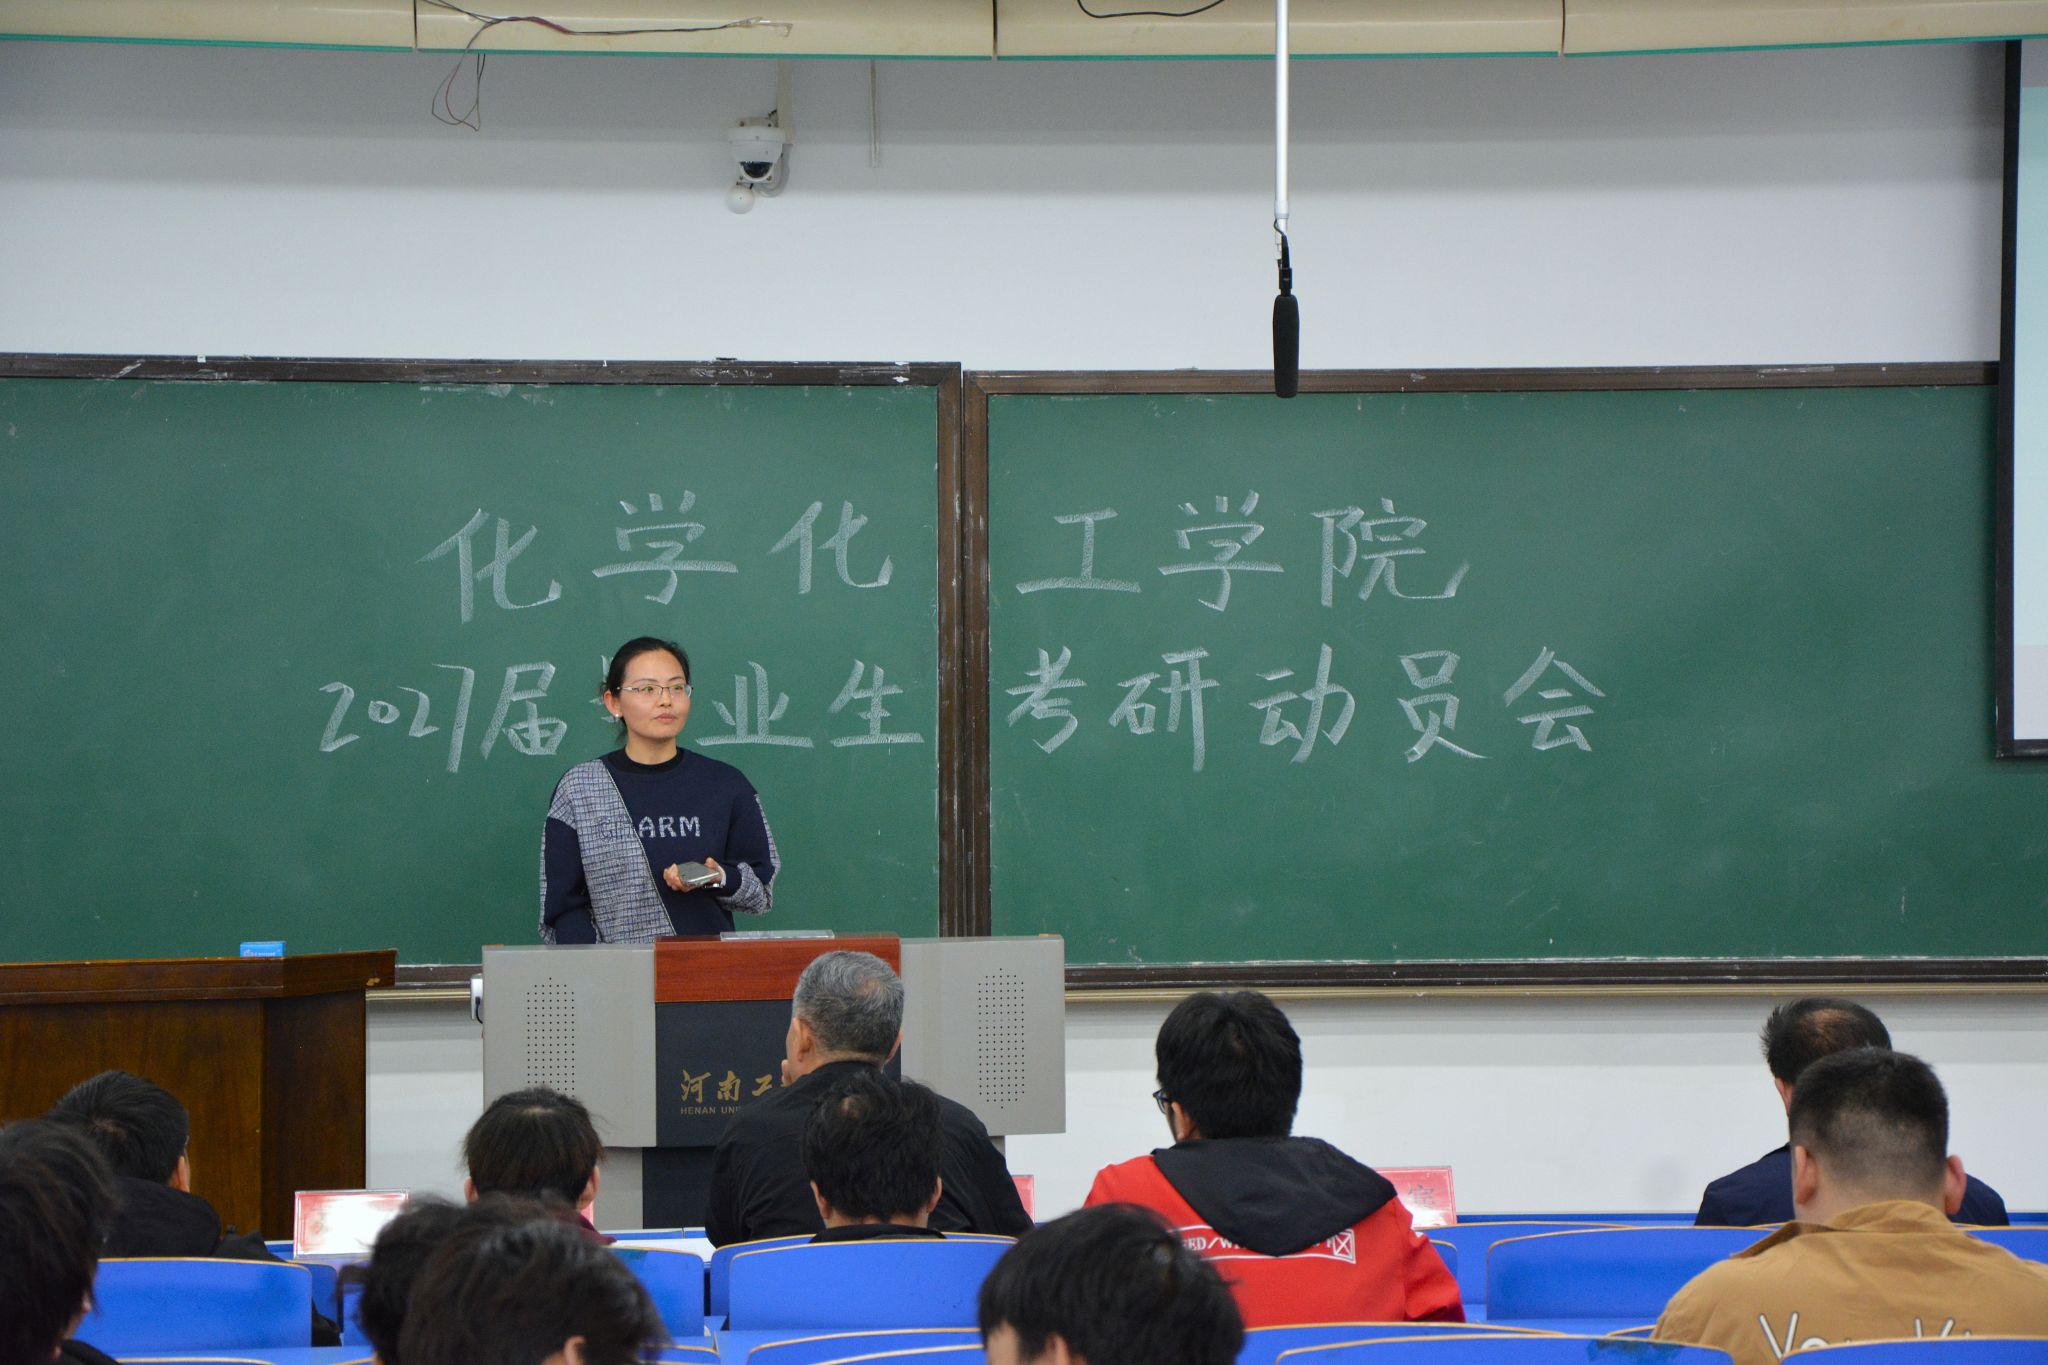 化学化工学院
2027届 业生考研动员会
ARM
河南工
HENAN UNI